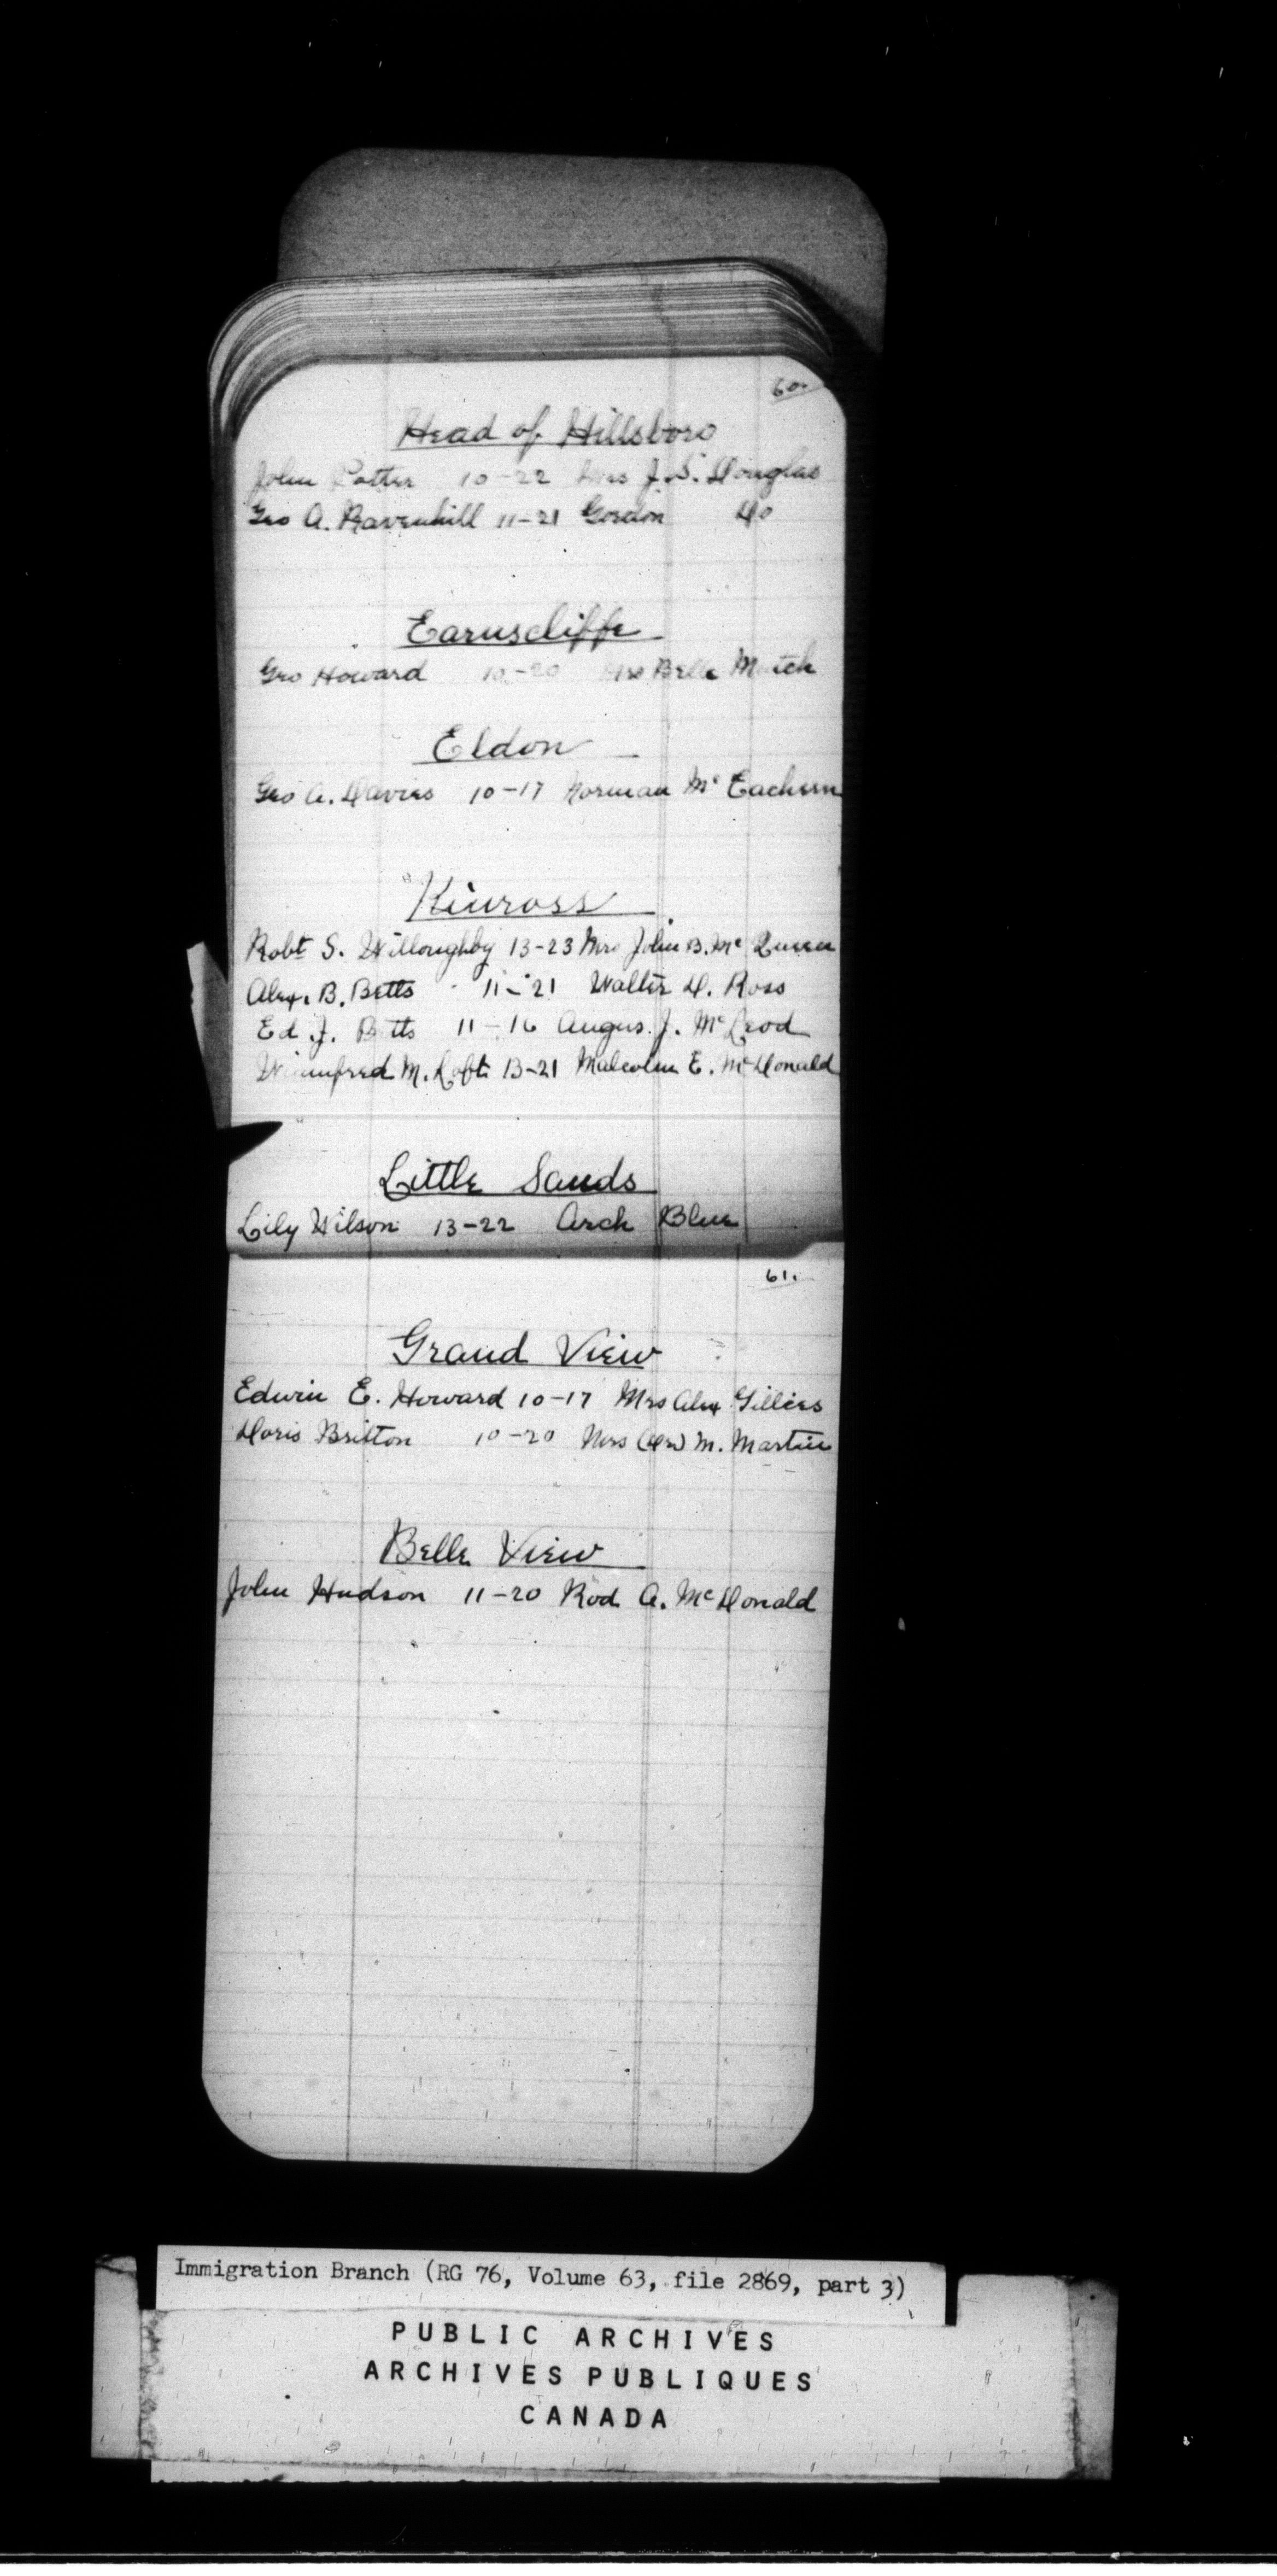 60.
Head of Hillsboro
John Potter 10-22 Mrs J. S. Douglas
Geo A. Ravenhill 11-21 Gordon Do
Earnscliffe
Geo Howard 10-20 Mrs Belle Mutch
Eldon
Geo A. Davies 10-17 Norman Mc Eachern
Kinross
Robt S. Willoughby 13-23 Mrs John B. Mc Queen
Alex. B. Betts 11-21 Walter D. Ross
Ed. J. Betts 11-16 Angus J. McLeod
Winnifred M. Loft 13-21 Malcolm E. McDonald
Little Sands
Lily Wilson 13-22 Arch Blue
61.
Grand View
Edwin E. Howard 10-17 Mrs Alex Gillies
Doris Britton 10-20 Mrs M. Martin
Belle View
John Hudson 11-20 Rod A. McDonald
Immigration Branch (RG 76, Volume 63, file 2869, part 3)
PUBLIC ARCHIVES
ARCHIVES PUBLIQUES
CANADA